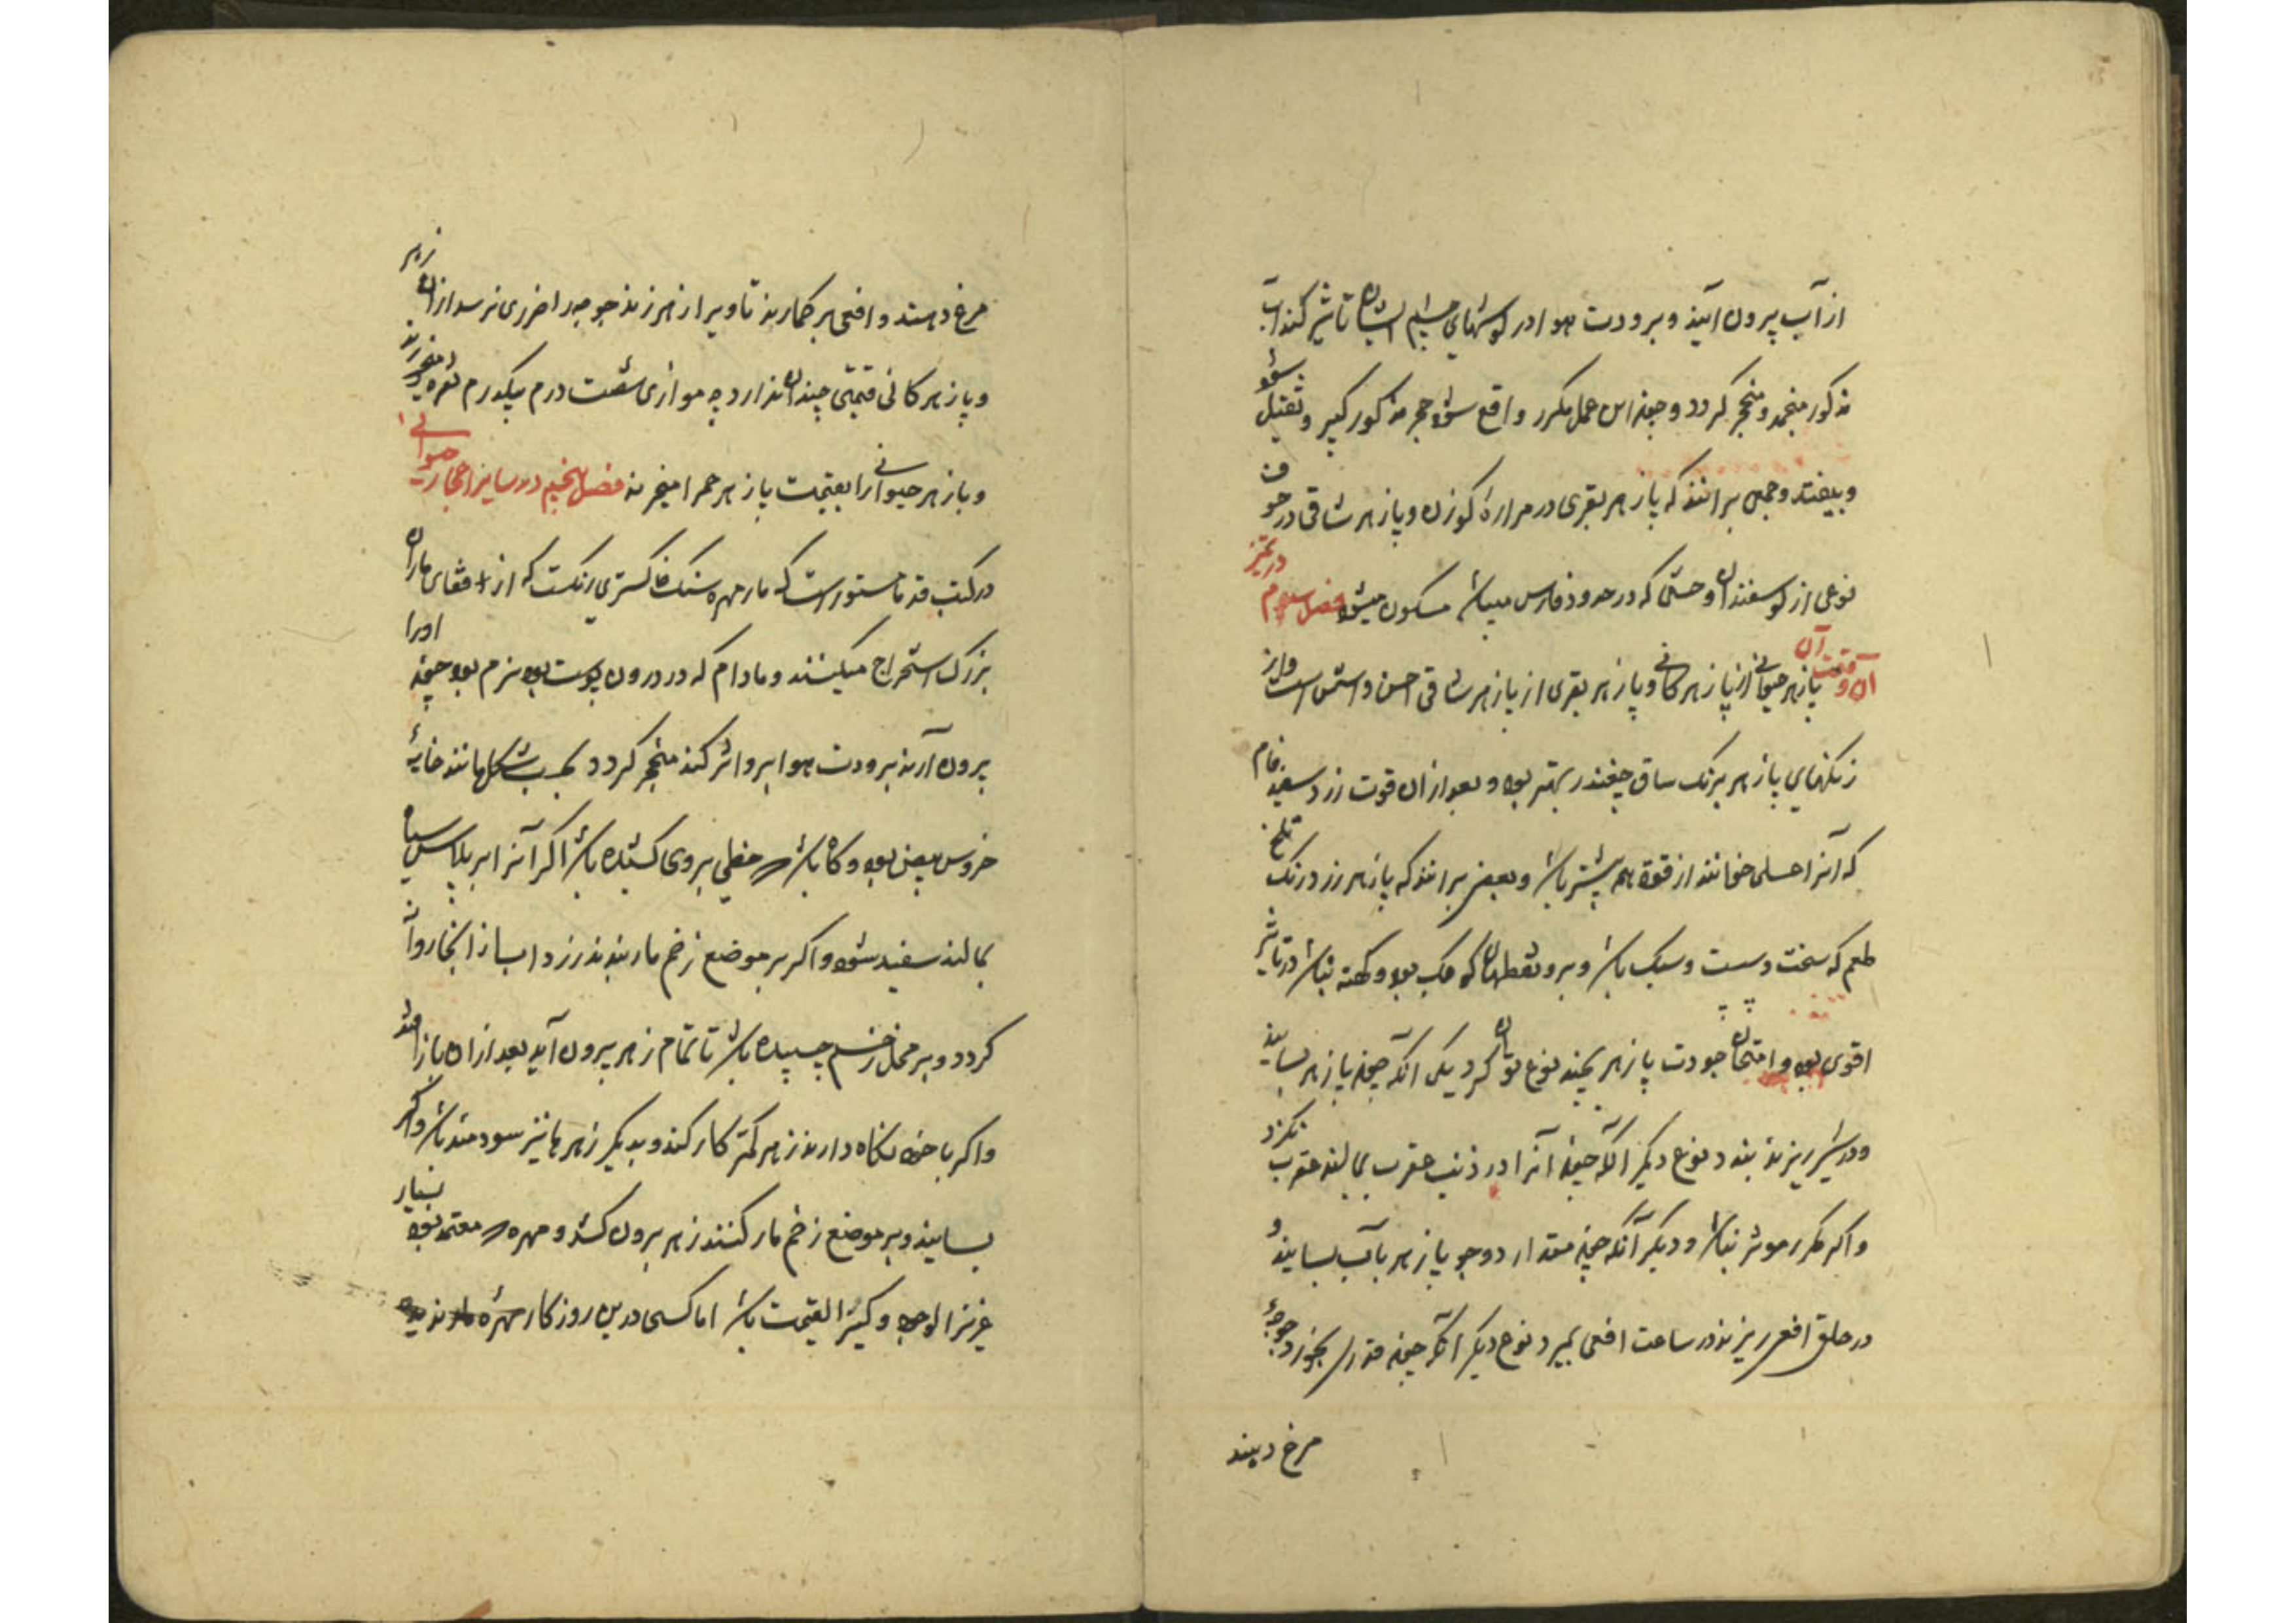 از آب بیرون آیند و برودت هوا در کوشهای چشم ایشان تاثیر کند آب
مذکور منجمد و متحجر کردد و چون این عمل مکرر واقع شود حجر مذکور کبیر و ثقیل شود
و بیفتد و جمعی برانند که پازهر بقری در مراره کوزن و پازهر شاقی در جوف
نوعی از کوسفندان وحشی که در حدود فارس میباشد مسکون میشود فصل سیوم در تمیز
آن و قیمت آن پازهر حیوانی از پازهر کانی و پازهر بقری از پازهر شاقی احسن و اثمن است و از
رنکهای پازهر برنک ساق چغندر بهتر بود و بعد از ان قوت زرد سفید فام
که آنرا عسلی خوانند از قوة هم بیشتر باشد و بعضی برانند که پازهر زرد رنک تلخ
طعم که سخت و سست و سبک باشد و برو نقطهای کوچک بود و کهنه نباشد در تاثیر
اقوی بود و امتحان جودت پازهر بچند نوع توان کرد یکی آنکه چون پازهر بسایند
و در شیر ریزند بندد نوع دیکر آنکه چون آنرا در ذنب عقرب بمالند عقرب نکزد
و اکر مکرر موثر نباشد و دیکر آنکه چون مقدار دو جو پازهر بآب بسایند و
در حلق افعی ریزند در ساعت افعی بمیرد نوع دیکر آنکه چون قدری بخورد جوجهٔ
مرغ دهند
مرغ دهند و افعی بر کمارند تا ویرا زهر زند جوجه را ضرری نرسد از ان زهر
و پازهر کانی قیمتی چندان ندارد چه موازی شصت درم بیکدرم نقره میخرند
و پازهر حیوانی را بقیمت پازهر حمرا میخرند فصل پنجم در سایر احجار حیوانی
در کتب قدما مستور است که مار مهره سنک خاکستری رنکست که از قفای ماران
بزرک استخراج میکنند و مادام که در درون پوست بود نرم بود چون اورا
بیرون آرند برودت هوا برو اثر کند متحجر کردد بحسب شکل مانند خایهٔ
خروس بیضی بود و کاه باشد که خطی بروی کشیده باشد اکر آنرا بر پلاس سیاه
بمالند سفید شود و اکر بر موضع زخم مار بندند زرد اب از انجا روان
کردد و بر محل زخم چسپیده باشد تا تمام زهر بیرون آید بعد از ان باز افتد
و اکر با خود نکاه دارند زهر کمتر کار کند و بدیکر زهرها نیز سودمند باشد و اکر
بسایند و بر موضع زخم مار کنند زهر بیرون کشد و مهره معتمد بسیار
عزیز الوجود و کثیر القیمت باشد اما کسی درین روزکار مهره مار ندیده